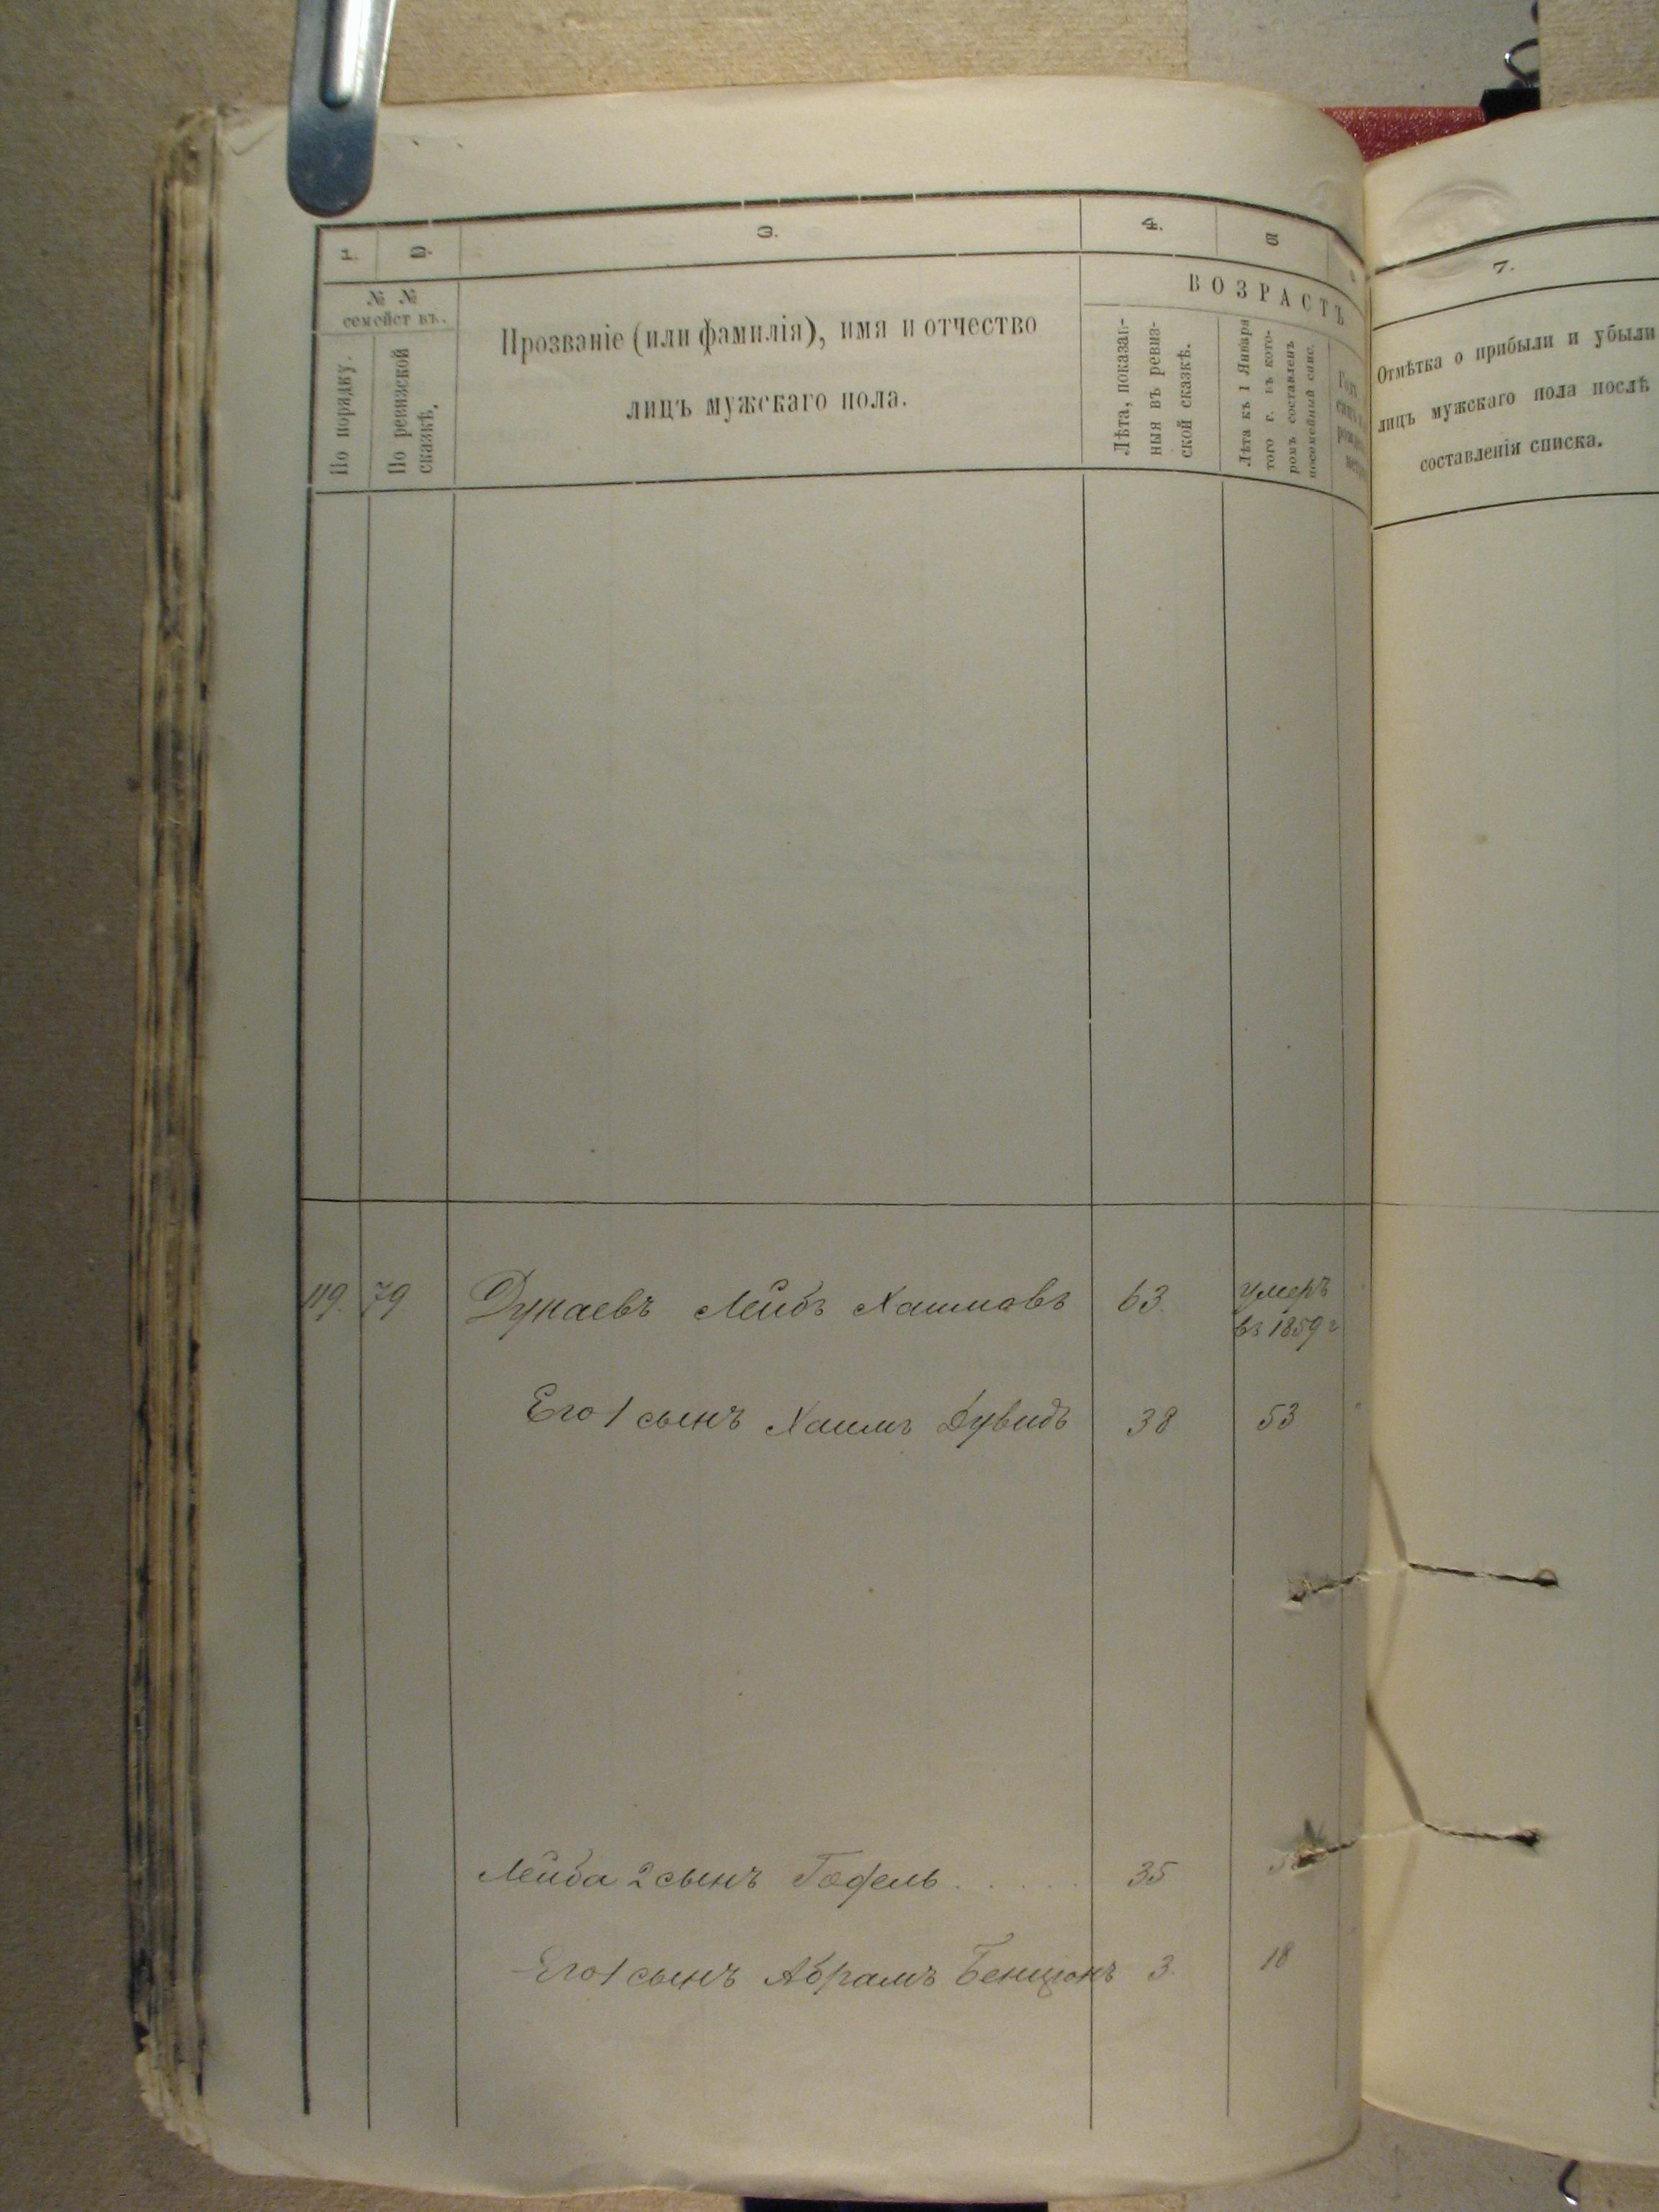 1.
2.
3.
4.
5
№ №
семействъ.
По порядку.
По ревизской
сказкѣ.
Прозваніе (или фамилія), имя и отчество
лицъ мужскаго пола.
ВОЗРАСТЪ
Лѣта, показан-
ныя въ ревиз-
ской сказкѣ.
Лѣта къ 1 Января
того г. въ кото-
ромъ составленъ
посемейный спис.
7.
Отмѣтка о прибыли и убыли
лицъ мужскаго пола послѣ
составленія списка.
119. 79 Дунаевъ Лейбъ Хаимовъ 63. умеръ
въ 1859 г
Его 1 сынъ Хаимъ Дувидъ 38 53
Лейба 2 сынъ Гофель . . . . . 35
Его 1 сынъ Абрамъ Бенционъ 3. 18